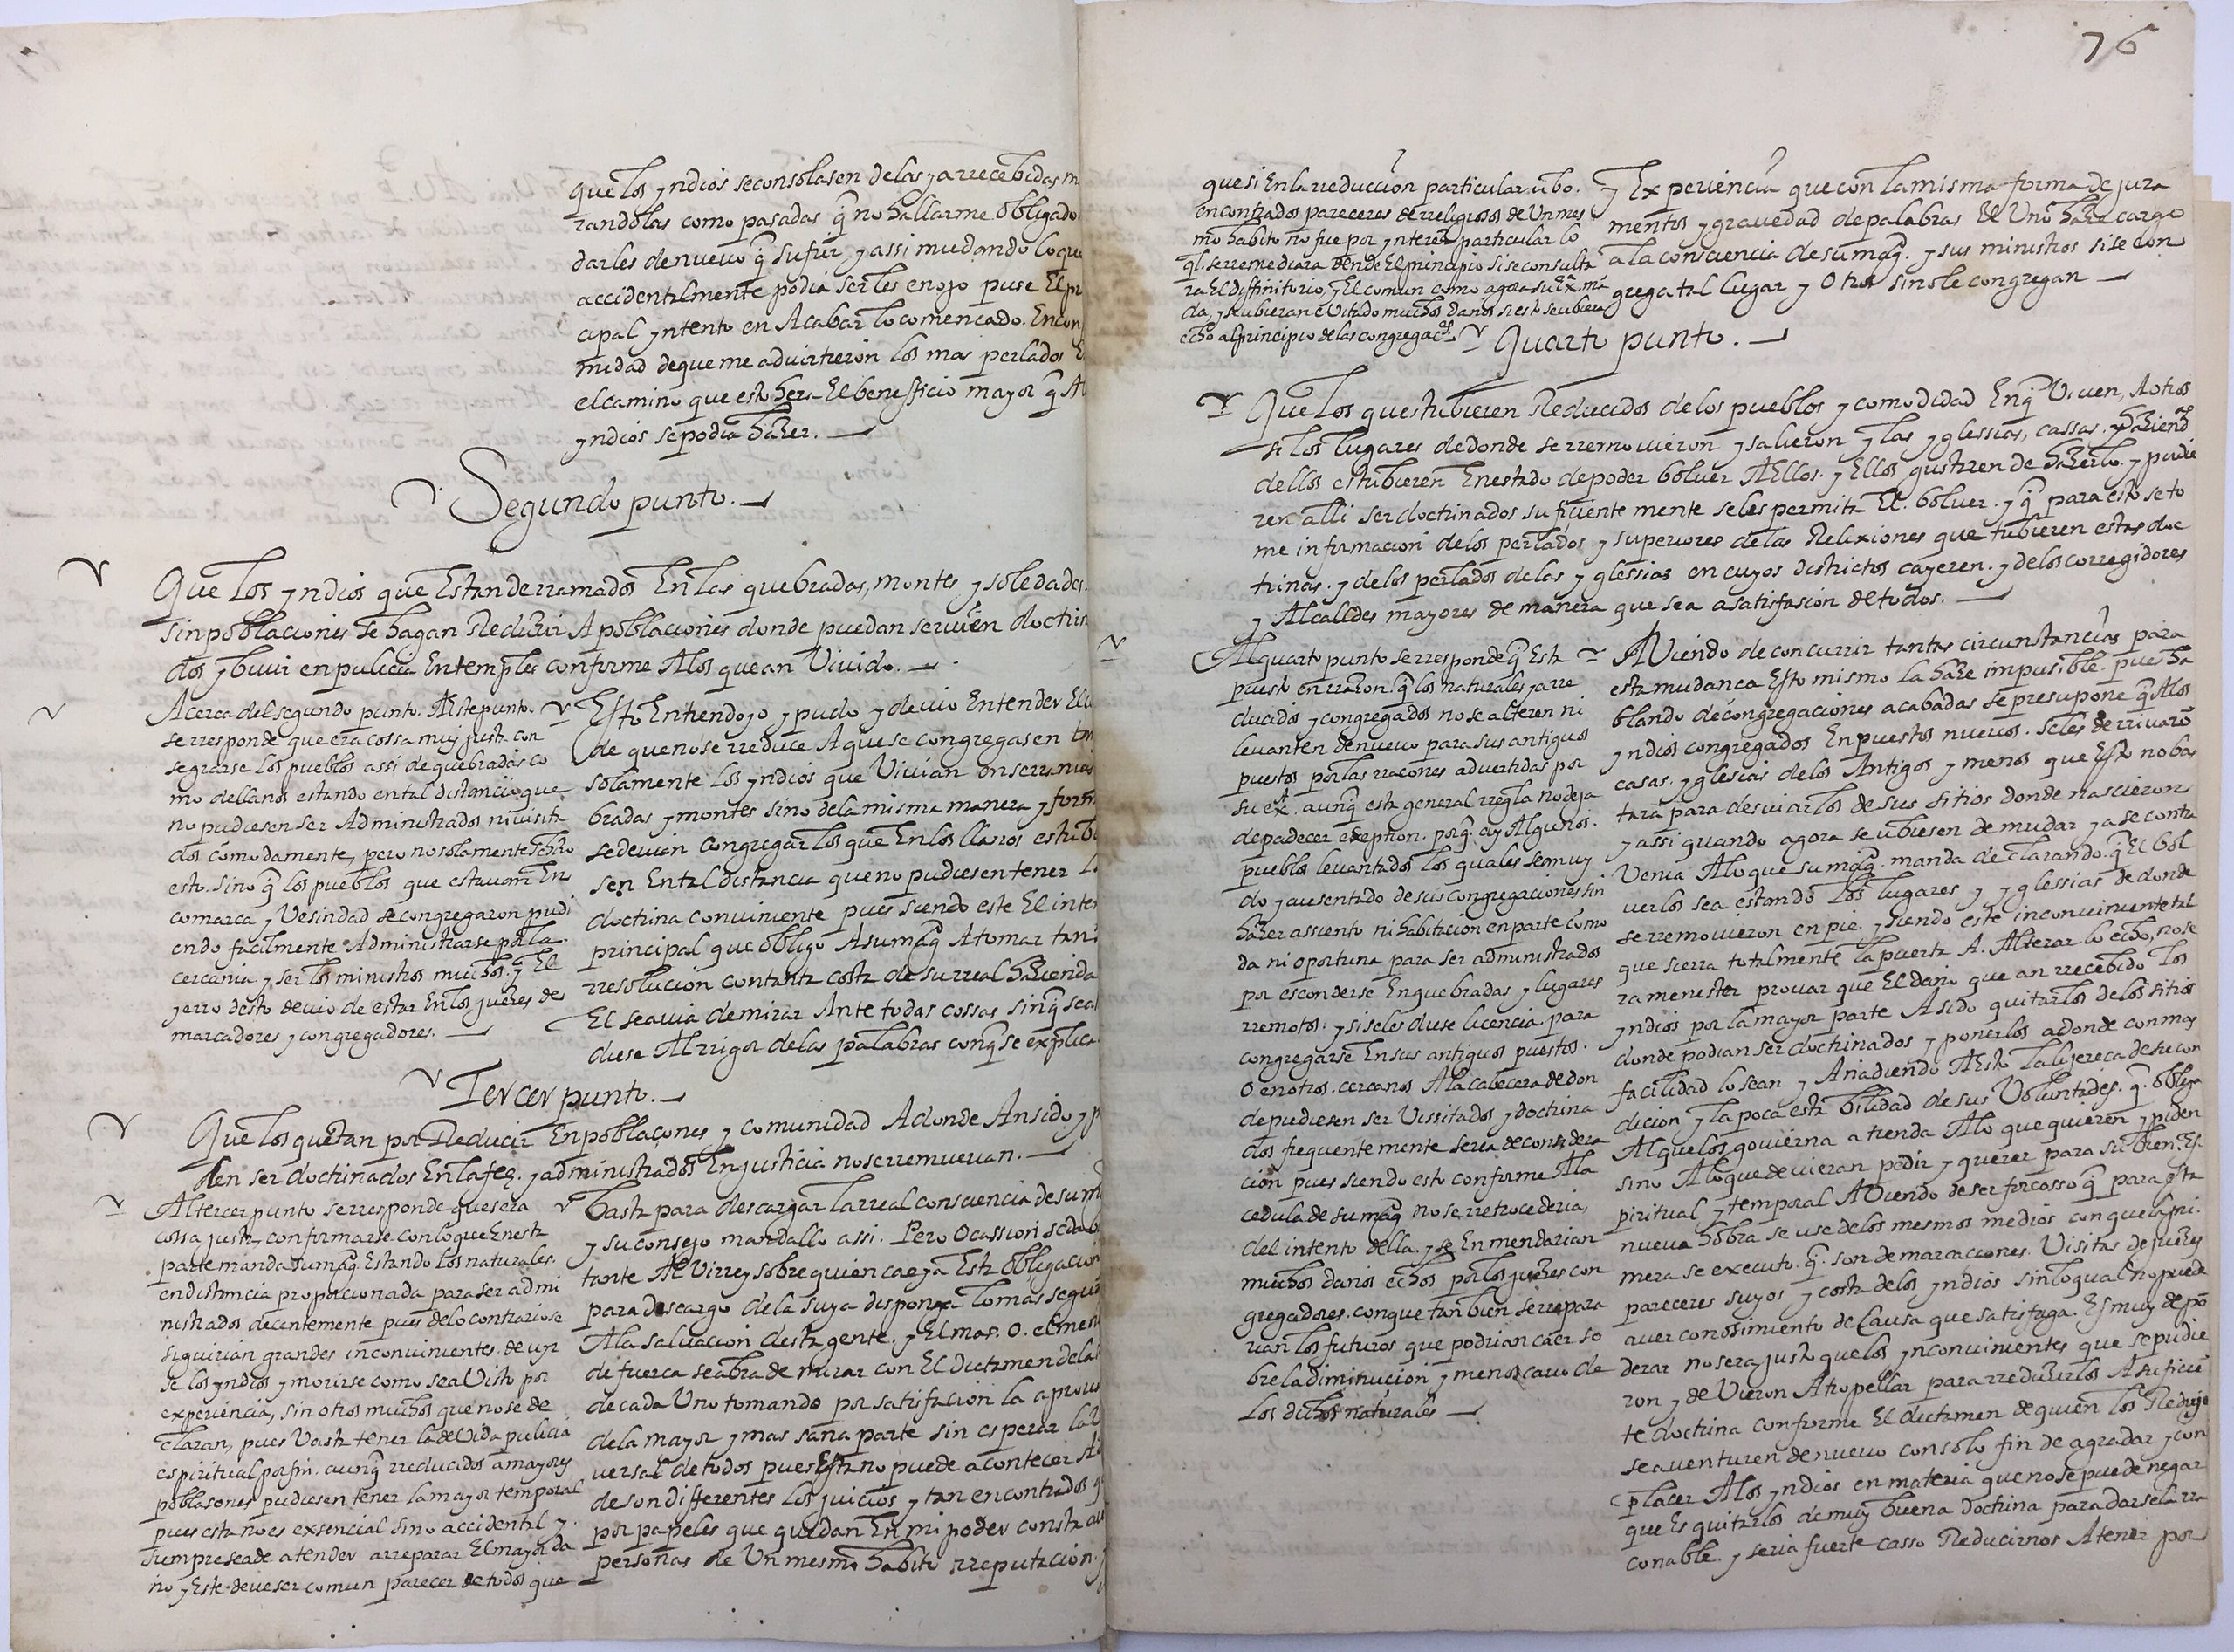 que los yndios seconsolasen delas yarrecebidas m
randolas como pasadas q̃ no hallarme obligado
darles denuevo q̃ sufrir, y assi mudando loque
accidentalmente podia serles enojo puse El pr
cipal yntento en Acabar lo comencado. Encon
midad deque me advirtieron los mas perlados
elcamino que esto hera El benefficio mayor q̃ A
yndios sepodia hazer.
Segundo punto.
Que Los yndios que Estan derramados En las quebradas, montes y soledades
sin poblaciones se hagan Reduzir A poblaciones donde puedan serbien doctrin
dos y bivir en pulicia En temples conforme Alos que an Vivido.
Acerca del segundo punto. Aeste punto.
serresponde que era cossa muy justa con
gregrarse los pueblos assi de quebradas co
mo dellanos estando en tal distancia que
no pudiesen ser Administrados ni visita
dos comodamente, pero no solamente se hizo
esto. sino q̃ los pueblos que estavan En
comarca y Vesindad se congregaron pudi
endo facilmente Administrarse por la
cercania y ser los ministros muchos. y El
yerro desto devio de estar En los juezes de
marcadores y congregadores.
Esto Entiendo yo y pudo y devio Entender El
de que no se rreduce A que se congregasen
solamente los yndios que Vivian en serranias
bradas y montes sino dela misma manera y form
sedevian congregar los que En los llanos estub
sen En tal distancia que no pudiesen tener L
doctrina conviniente pues siendo este El inten
principal que obligo A su magd A tomar tan
rresolucion con tanta costa de su rreal hazienda
El seavia demirar Ante todas cossas sin q̃ sea
diese Al rrigor delas palabras con q̃ se explica
Tercer punto.
Que los questan por Reducir En poblaçones y comunidad Adonde An sido y p
den ser doctrinados En la fee. y administrados En justicia no se rremuevan.
Al tercer punto serresponde que sera
cossa justa conformarse con lo que En esta
parte manda su magd Estando los naturales
en distancia proporcionada para ser admi
nistrados decentemente pues delo contrario se
siguirian grandes inconvinientes. de uyr
se los yndios y morirse como sea Visto por
experiencia, sin otros muchos que no se de
claran, pues Vasta tener la de Vida pulicia
espiritual por fin. aunq̃ rreducidos a mayores
poblasones pudiesen tener la mayor temporal
pues esta no es exsencial sino accidental y
siempre seade atender arreparar El mayor da
no y Este deve ser comun parecer de todos que
Basta para descargar la rreal consciencia de su m
y su consejo mandallo assi. Pero Ocassion se da
tante Al Virrey sobre quien cae ya Esta obligacion
para descargo dela suya disponga lo mas segu
A la salvacion desta gente. y El mas. o. el meno
de fuerca seabra de mirar con El Dictamen dela
de cada Uno tomando por satisfacion la aprova
dela mayor y mas sana parte sin esperar la V
versal de todos pues Esta no puede acontecer A
de son differentes los juicios y tan encontrados q
por papeles que quedan En mi poder consta
personas de Un mesmo habito rreputacion. y
76
que si En la rreduccion particular. ubo.
encontrados pareceres de rreligiosos de Un mes
mo habito no fue por ynteres particular lo
ql. serremediara dende El principio si se consulta
ra El diffinitorio, y El comun como agora su Exa. mã
da, y se ubieran evitado muchos danos si esto se ubiera
echo al principio de las congregaçes.
y Experiencia que con la misma forma de jura
mentos y gravedad de palabras El Uno haze cargo
a la consciencia de su magd. y sus ministros si se con
grega tal lugar y Otro si no se congregan
Quarto punto.
Que Los questubieren Reducidos de los pueblos y comodidad En q̃ Viven, A otros
si los lugares de donde se rremovieron y salieron y las yglessias, cassas. y haziendas
dellos estubieren En estado de poder bolver A Ellos. y Ellos gustaren de hazerlo y pudie
ren alli ser doctrinados suficiente mente seles permita El. bolver. y q̃ para esto se to
me informacion de los perlados y superiores delas Relixiones que tubieren estas doc
trinas. y delos perlados delas yglessias en cuyos districtos cayeren. y delos corregidores
y Alcaldes mayores de manera que sea a satisfasion de todos.
Al quarto punto serresponde q̃ Esta
puesto en rrazon. q̃ los naturales yarre
ducidos y congregados no se alteren ni
levanten denuevo para sus antiguos
puestos por las rraçones advertidas por
su exa. aunq̃ esta general rregla no deja
de padecer exeption. porq̃. ay Algunos.
pueblos levantados los quales se an uy
do y ausentado de sus congregaciones sin
hazer assiento ni habitacion en parte como
da ni oportuna para ser administrados
por esconderse En quebradas y lugares
rremotos. y si seles diese licencia. para
congregarse En sus antiguos puestos.
O en otros. cercanos Ala cabecera de don
de pudiesen ser Vissitados y doctrina
dos frequente mente seria de considera
cion pues siendo esto conforme Ala
cedula de su magd no se rretrocederia,
del intento della. y se Enmendarian
muchos danos echos por los juezes con
gregadores. con que tan bien se rrepara
rian los futuros que podrian caer so
bre la diminucion y menoscavo de
Los dichos naturales
AViendo de concurrir tantas circunstancias para
esta mudanca Esto mismo la haze impusible pues ha
blando de congregaciones acabadas se presupone q̃ Alos
yndios congregados En puestos nuevos. seles derrivarõ
casas. yglesias delos Antigos y menos que Esto no bas
tara para desviarlos de sus sitios donde nascieron
y assi quando agora se ubiesen de mudar ya se contra
Venia Alo que su magd. manda declarando. q̃ El bol
verlos sea estando Los lugares y yglessias de donde
se rremovieron en pie. y siendo este inconviniente tal
que sierra totalmente la puerta A. Alterar lo echo, no se
ra menester provar que El daño que an rrecebido Los
yndios por la mayor parte A sido quitarlos delos sitios
donde podian ser doctrinados y ponerlos adonde con mas
facilidad lo sean y Anadiendo A Esto la lijereça de su con
dicion y la poca estabilidad de sus Voluntades. q̃. obliga
Al que los govierna atienda Alo que quieren y piden
sino Alo que devieran pedir y querer para su bien. Es
piritual y temporal AViendo de ser forcosso q̃ para esta
nueva hobra se use delos mesmos medios con que la pri.
mera se executo. q̃. son demarcaciones. Visitas de juezes
pareceres suyos y costa delos yndios sin lo qual no puede
aver conossimiento de Causa que satisfaga. Es muy de põ
derar no sera justo que los ynconvinientes que se pudie
ron y deVieron Atropellar para rreduzirlos A suficiẽ
te doctrina conforme El dictamen de quien los Redujo
seaventuren denuevo con solo fin de agradar y con
placer A los yndios en materia que no se puede negar
que Es quitarlos de muy buena doctrina para darsela rra
conable. y seria fuerte casso Reducirnos A tener por